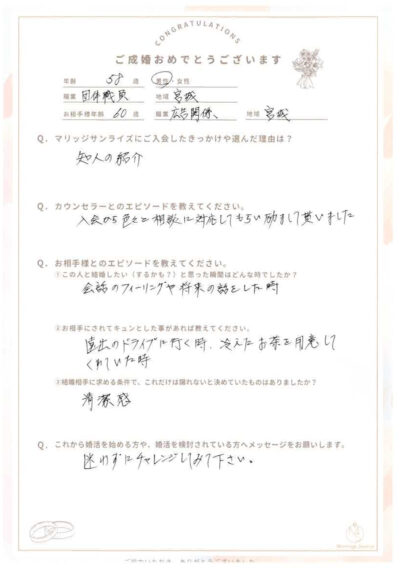 CONGRATULATIONS
ご成婚おめでとうございます
年齢 58 歳 男性・女性
職業 団体職員 地域 宮城
お相手様年齢 60 歳 職業 広告関係 地域 宮城
Q. マリッジサンライズにご入会したきっかけや選んだ理由は？
知人の紹介
Q. カウンセラーとのエピソードを教えてください。
入会から色々と相談に対応してもらい励まして貰いました
Q. お相手様とのエピソードを教えてください。
①この人と結婚したい（するかも？）と思った瞬間はどんな時でしたか？
会話のフィーリングや将来の話をした時
②お相手にされてキュンとした事があれば教えてください。
遠出のドライブに行く時、冷えたお茶を用意して
くれていた時
③結婚相手に求める条件で、これだけは譲れないと決めていたものはありましたか？
清潔感
Q. これから婚活を始める方や、婚活を検討されている方へメッセージをお願いします。
迷わずにチャレンジしてみて下さい。
Marriage Sunrise
ご協力いただき、ありがとうございました